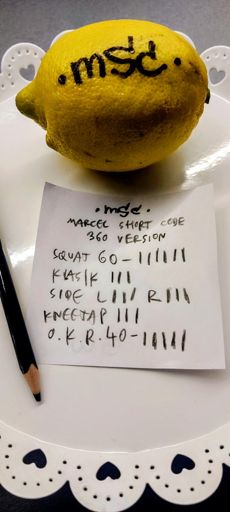 .msc.
.msc.
MARCEL SHORT CODE
360 VERSION
SQUAT 60 - IIIIII
KLASIK III
SIDE L III R III
KNEETAP III
O.K.R. 40 - IIIIII